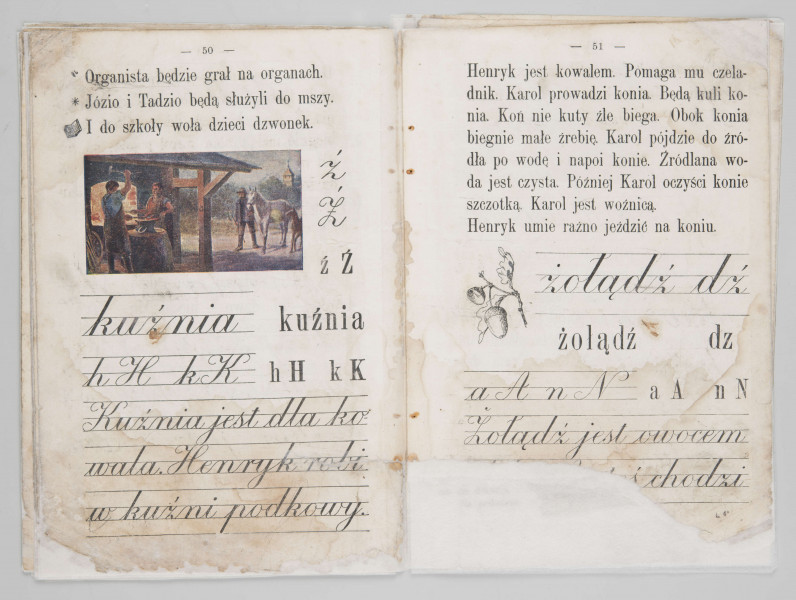 — 50 —
Organista będzie grał na organach.
* Józio i Tadzio będą służyli do mszy.
I do szkoły woła dzieci dzwonek.
ź
Ź
ź Ź
kuźnia kuźnia
h H k K h H k K
Kuźnia jest dla ko-
wala. Henryk robi
w kuźni podkowy.
— 51 —
Henryk jest kowalem. Pomaga mu czela-
dnik. Karol prowadzi konia. Będą kuli ko-
nia. Koń nie kuty źle biega. Obok konia
biegnie małe źrebię. Karol pójdzie do źró-
dła po wodę i napoi konie. Źródlana wo-
da jest czysta. Później Karol oczyści konie
szczotką. Karol jest woźnicą.
Henryk umie raźno jeździć na koniu.
żołądź dź
żołądź dz
a A n N a A n N
Żołądź jest owocem
chodzi